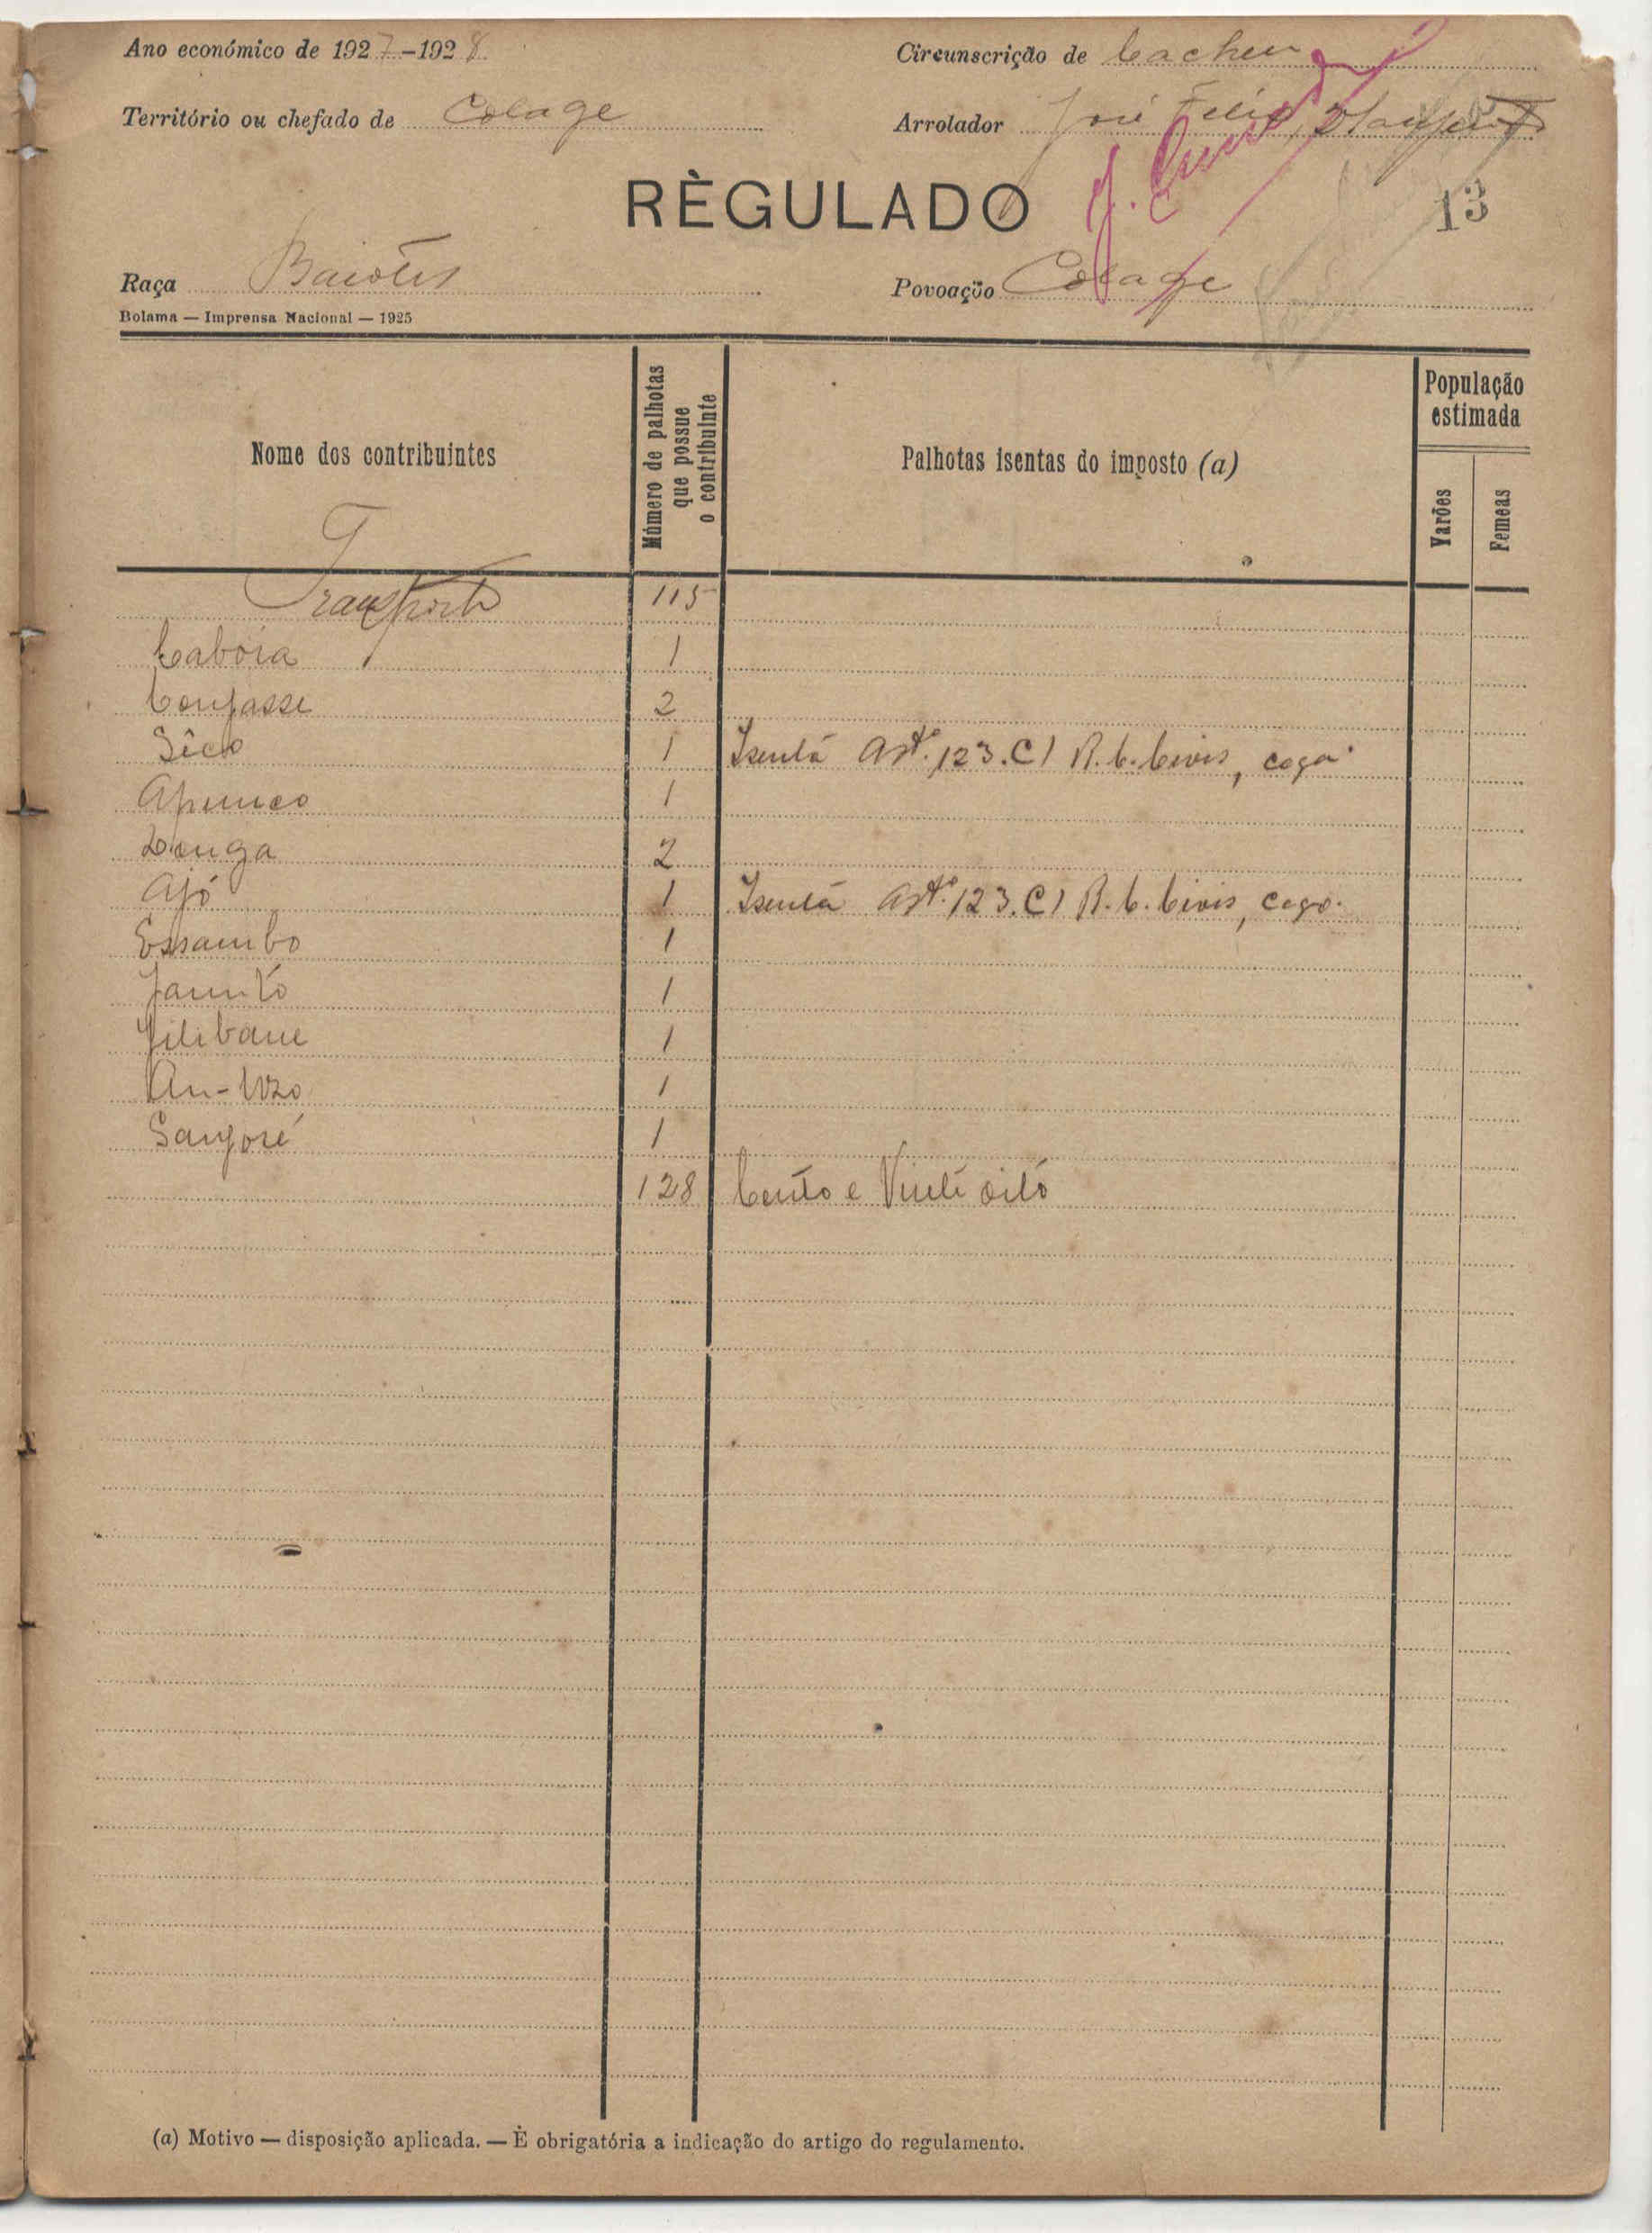 Ano económico de 1927-1928
Circunscrição de Cacheu
Território ou chefado de Colage
Arrolador José Felix
RÈGULADO
13
Raça Baiotes
Povoação Colage
Bolama — Imprensa Nacional — 1925
Nome dos contribuintes
Número de palhotas que possue o contribuinte
Palhotas isentas do imposto (a)
População estimada
Varões
Femeas
Transporte 115
Cabóia 1
Confasse 2
Sêco 1 Isenta Artº. 123. C) R. C. Civis, cega.
Apumco 1
Denga 2
Ajó 1 Isenta Artº. 123. C) R. C. Civis, cego.
Essambo 1
Jamitó 1
Jilibane 1
An-Uzo 1
Sanjoré 1
128 Cento e Vinte oito
(a) Motivo — disposição aplicada. — È obrigatória a indicação do artigo do regulamento.